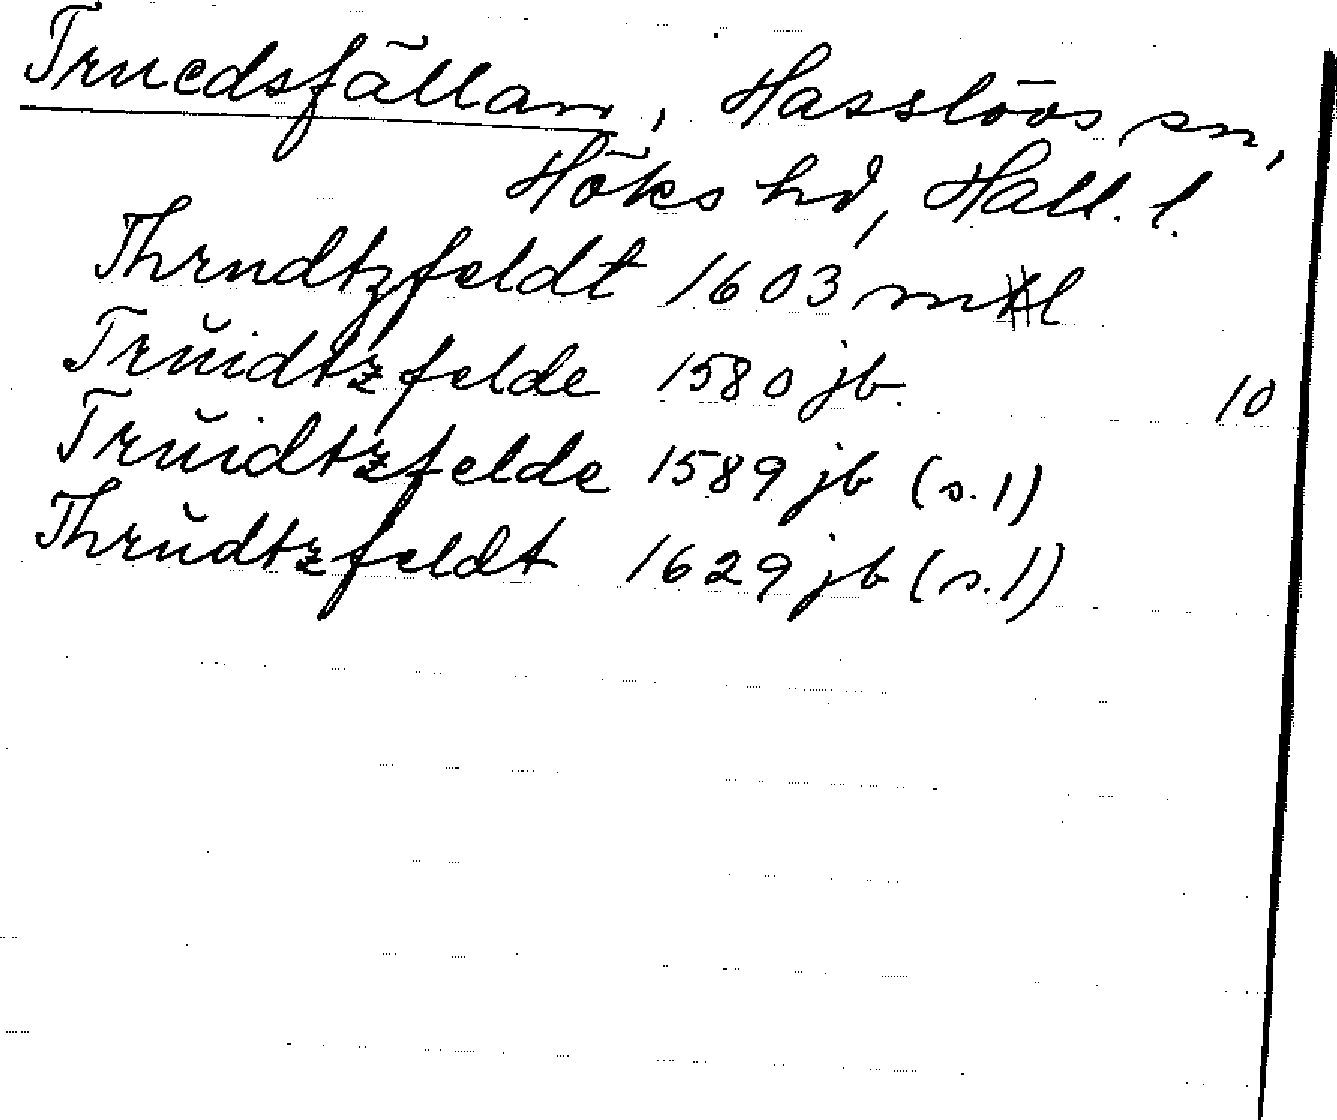 Truedsfällan, Hasslövs sn,
Höks hd, Hall. l.
Thrudtzfeldt 1603 ml
Trŭidtzfelde 1580 jb. 10
Trŭidtzfelde 1589 jb (s. 1)
Thrŭdtzfeldt 1629 jb (s. 1)